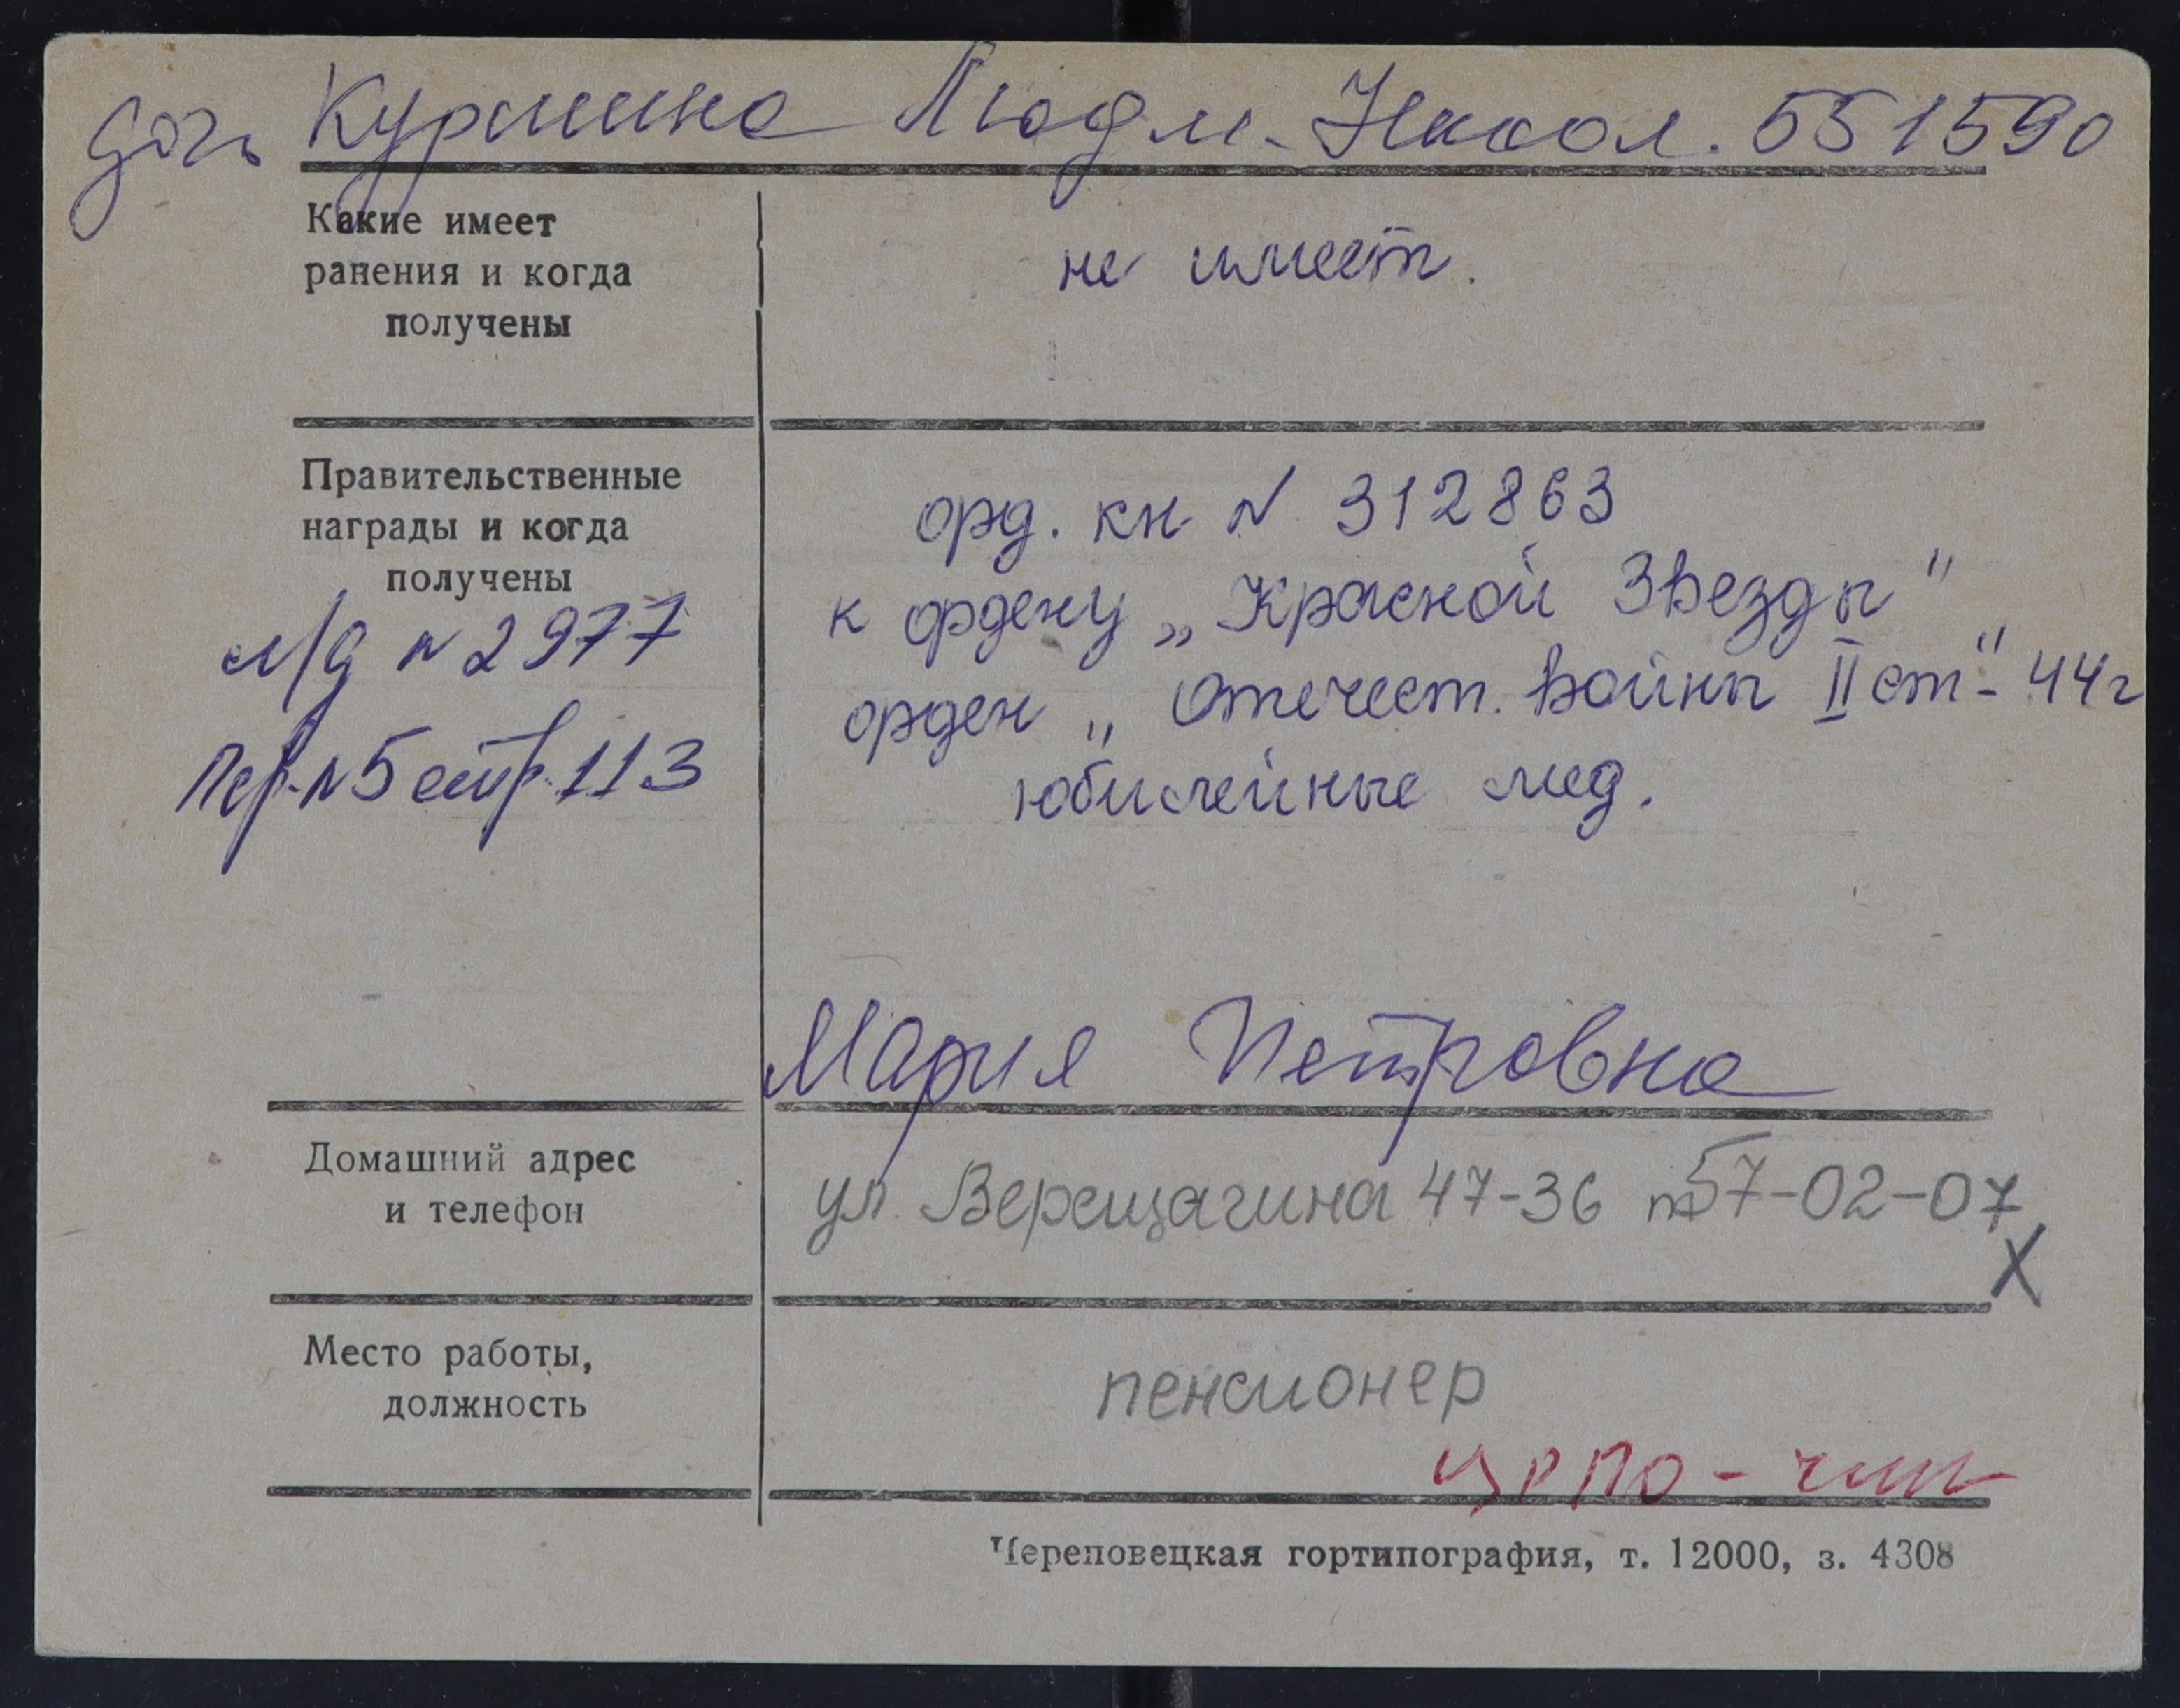 дочь Куршина Людм. Никол. 551590
Какие имеет
ранения и когда
получены
не имеет.
Правительственные
награды и когда
получены
орд. кн N 312863
к ордену „Красной Звезды"
орден „Отечест. Войны II ст" - 44г
юбилейные мед.
л/д N 2977
пер. N 5 стр. 113
Мария Петровна
Домашний адрес
и телефон
ул. Верещагина 47-36 т 57-02-07
X
Место работы,
должность
пенсионер
Череповецкая гортипография, т. 12000, з. 4308